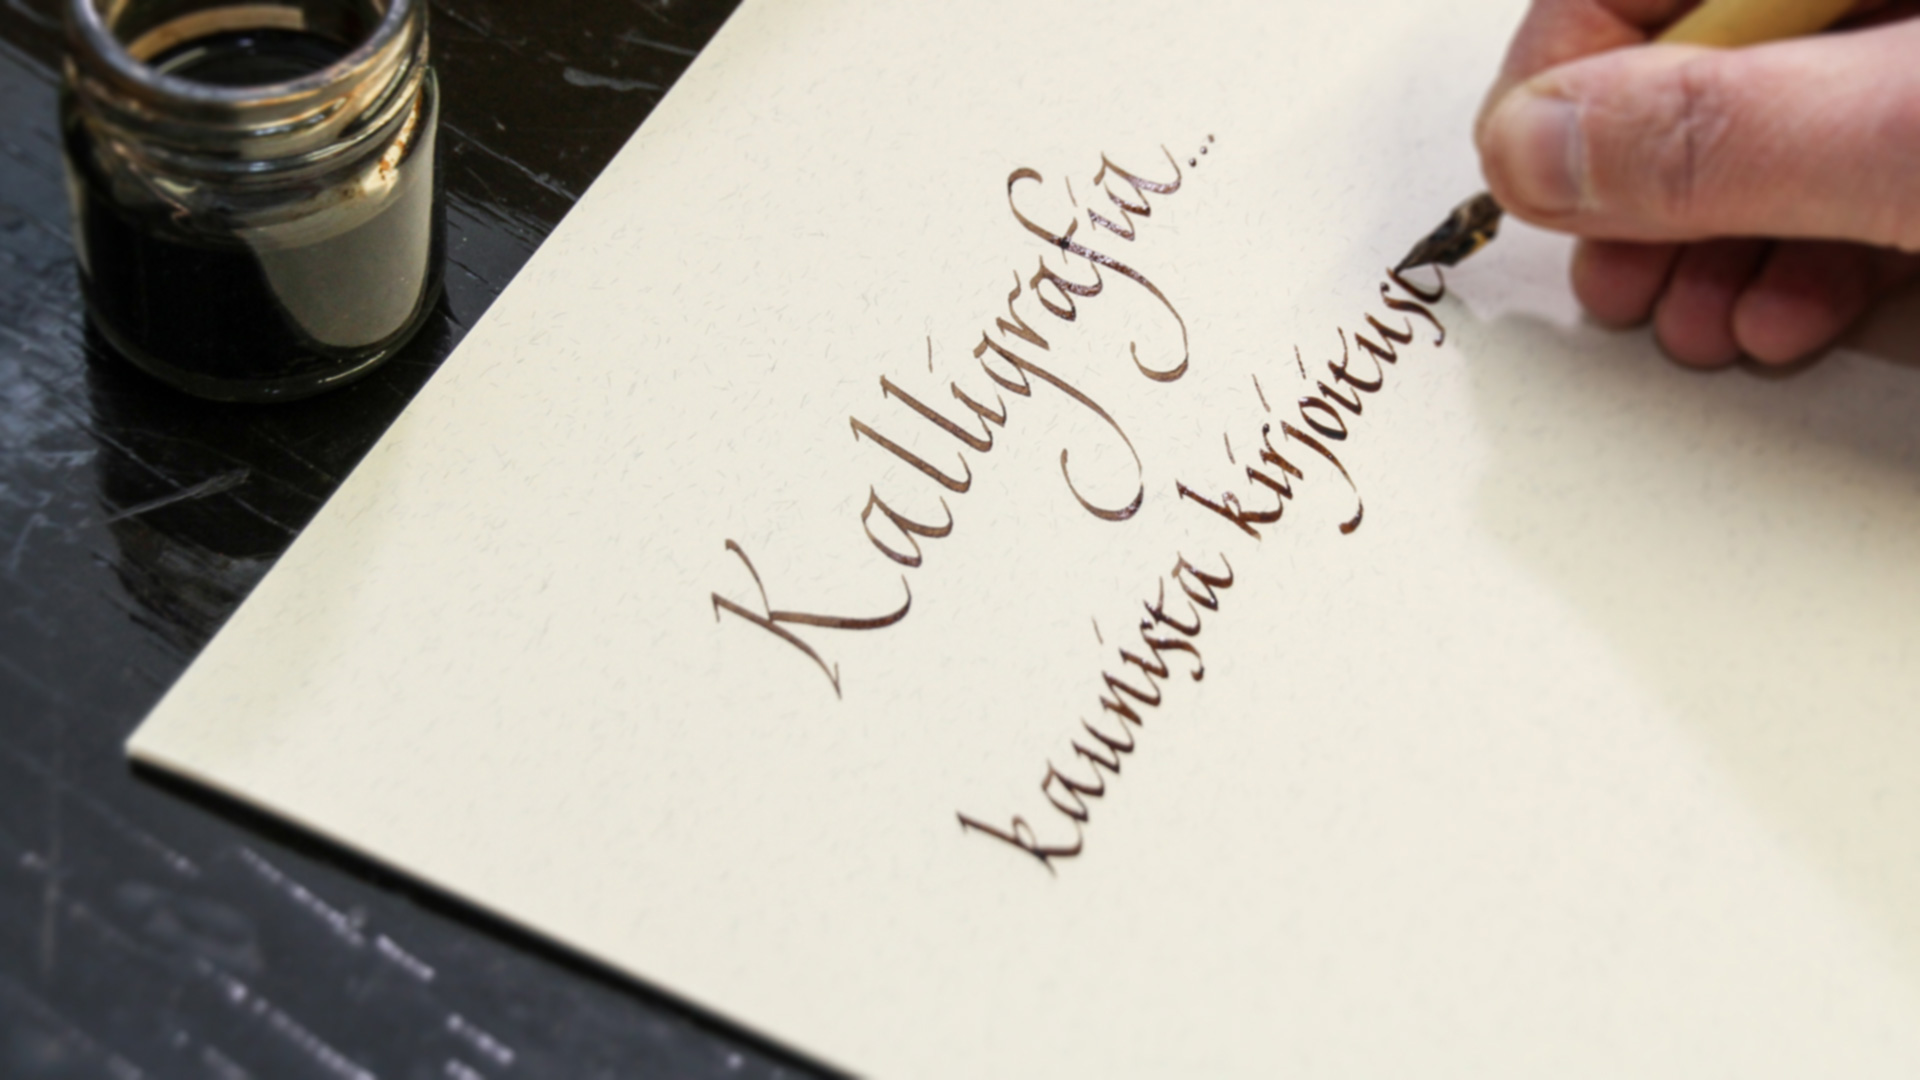 Kalligrafia...
kaunista kirjoitusta